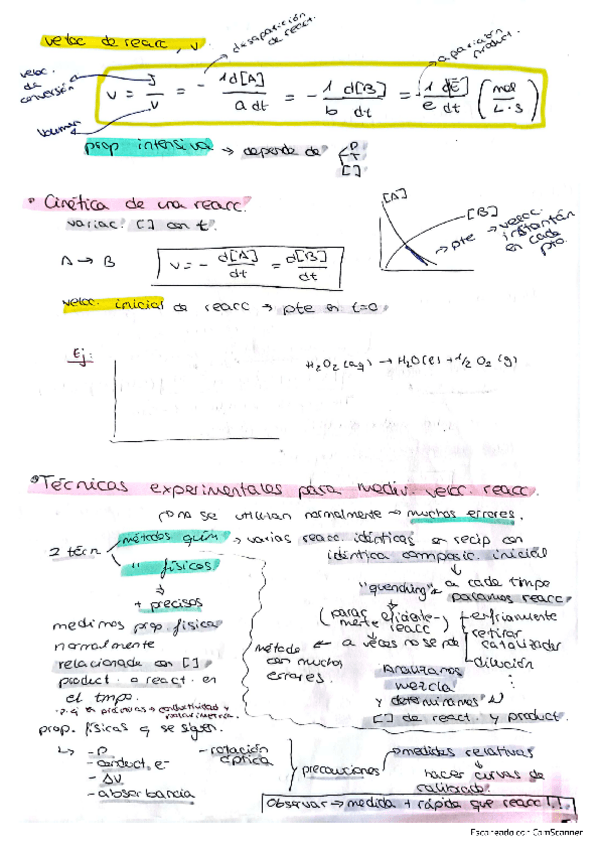 veloc de reacc, v.
desaparición de react.
aparición product.
veloc. de conversión
volumen
v = J/V = - 1 d[A]/a dt = - 1/b d[B]/dt = 1/e d[E]/dt (mol/L·s)
prop intensiva → depende de P T []
• Cinética de una reacc.
variac. [] con t.
[A]
[B]
→ pte → veloc. instantán en cada pto.
A → B
v = - d[A]/dt = d[B]/dt
veloc. inicial de reacc → pte en t=0.
Ej:
H2O2 (aq) → H2O(l) + 1/2 O2 (g)
• Técnicas experimentales para medir veloc. reacc.
no se utilizan normalmente → muchos errores.
2 técn
métodos quím → varias reacc. idénticas en recip con
idéntica composic. inicial
" físicos
"quending" → a cada tmpo
paramos reacc
+ precisos
(parar eficientemente reacc)
- enfriamiento
- retirar catalizador
- dilución
a veces no se pde
método con muchos errores.
medimos prop. física
normalmente
relacionada con []
product. o react. en
el tmpo.
Analizamos
mezcla
y determinamos
[] de react. y product.
p.ej en prácticas → conductividad y polarimetría.
prop. físicas q se siguen.
- P
- conduct. e-
- ΔV
- absorbancia
- rotación óptica
precauciones
medidas relativas
hacer curvas de
calibrado.
Observar → medida + rápida que reacc!!
Escaneado con CamScanner